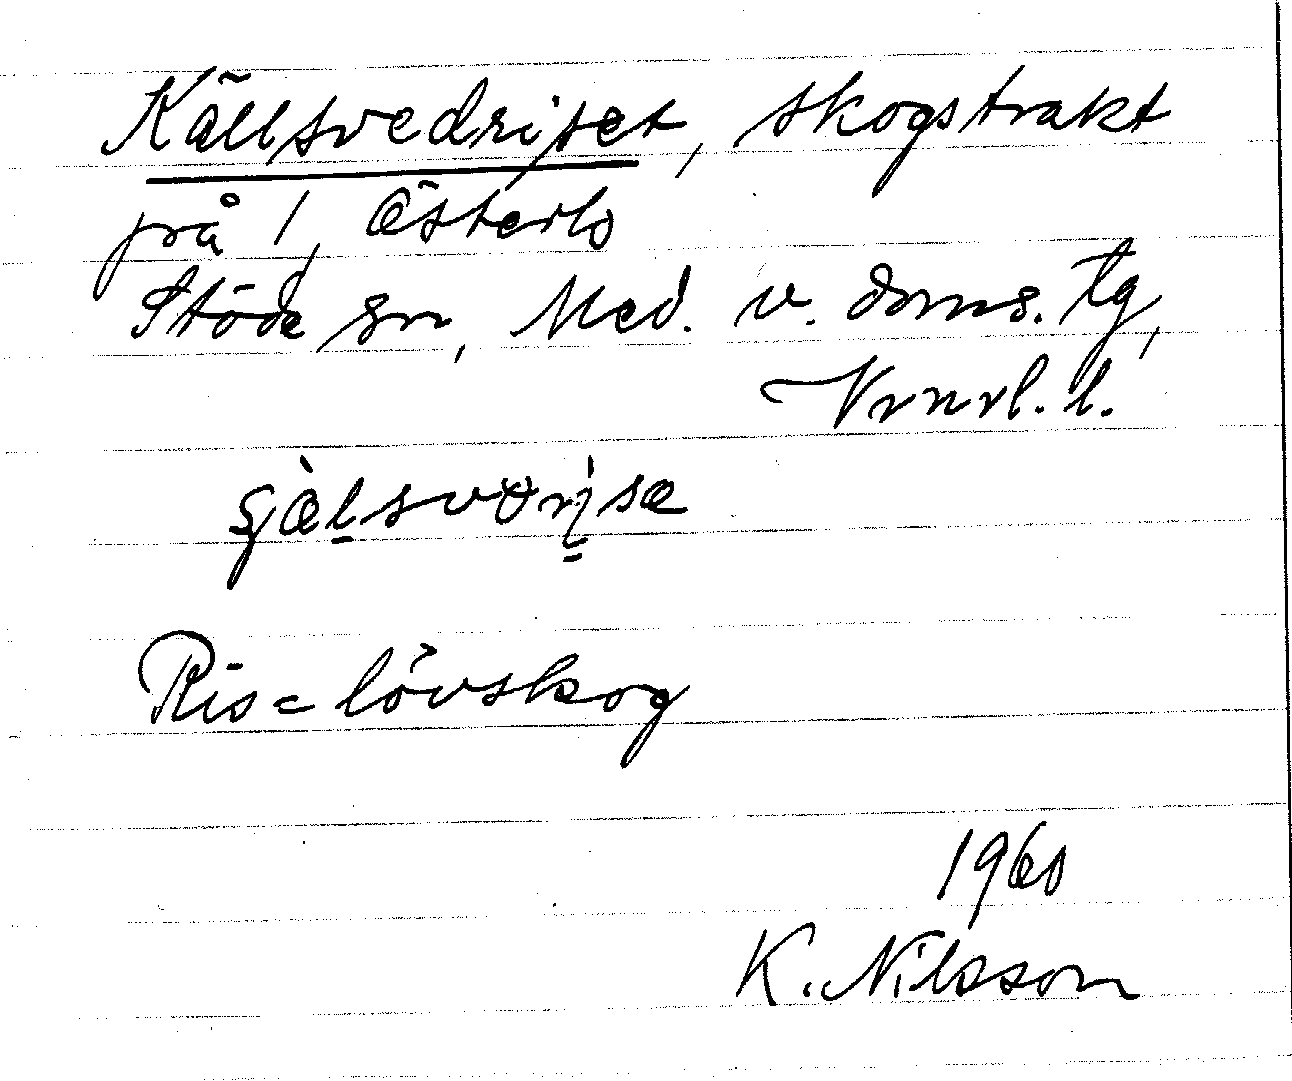 Källsvedriset, skogstrakt
på 1, Österlo
Stöde sn, Med. v. doms. tg,
Vrnrl. l.
Ris = lövskog
1960
K. Nilsson